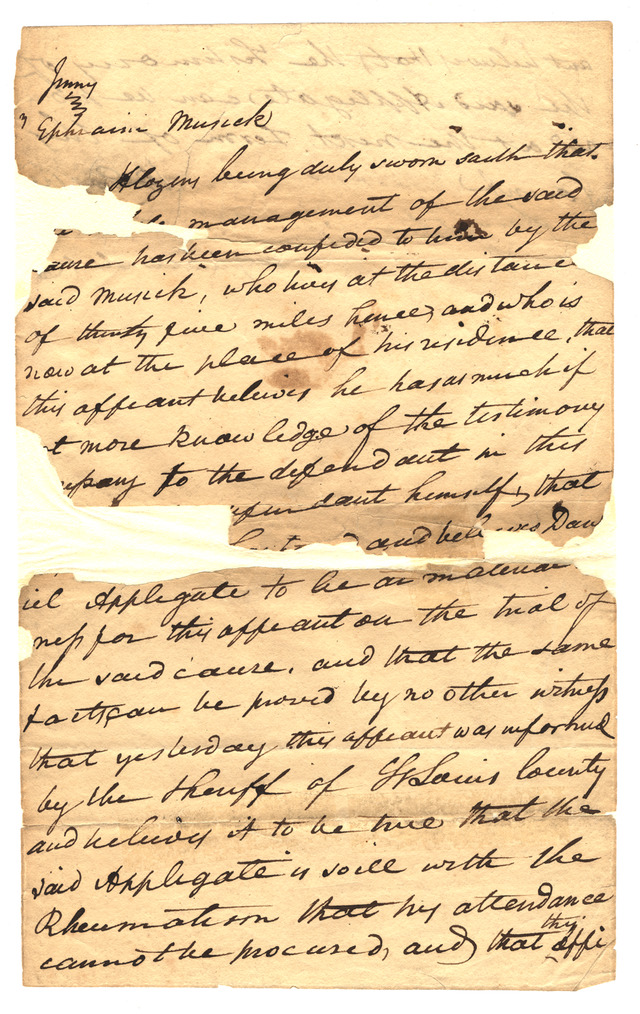 Jenny
vs
Ephraim Musick
H Cozens being duly sworn saith that
management of the said
ause has been confided to him by the
said Musick, who lives at the distance
of thirty five miles hence, and who is
now at the place of his residence, that
this affeant believes he has as much if
t more knowledge of the testimony
to the defendant in this
fendant himself, that
and believes Dan
iel Applegate to be a material
ness for this affeant on the trial of
the said cause, and that the same
facts can be proved by no other witness
that yesterday this affeant was informed
by the Sheriff of St Louis County
and believes it to be true that the
said Applegate is so ill with the
Rheumatism that his attendance
cannot be procured, and that this affi